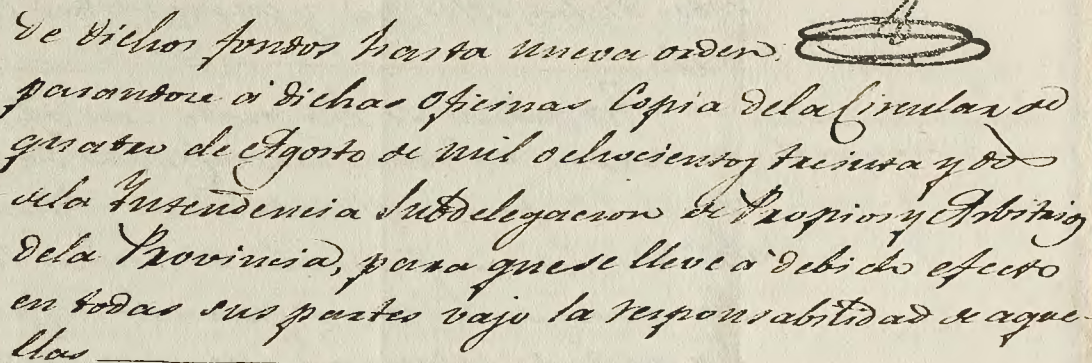 de dichos fondos hasta nueva orden.
pasandose á dichas oficinas Copia dela Circular de
quatro de Agosto de mil ochocientos treinta y dos
dela Intendencia Subdelegacion de Propios y Arbitrios
dela Provincia, para que se lleve á debido efecto
en todas sus partes vajo la responsabilidad de aque-
llas